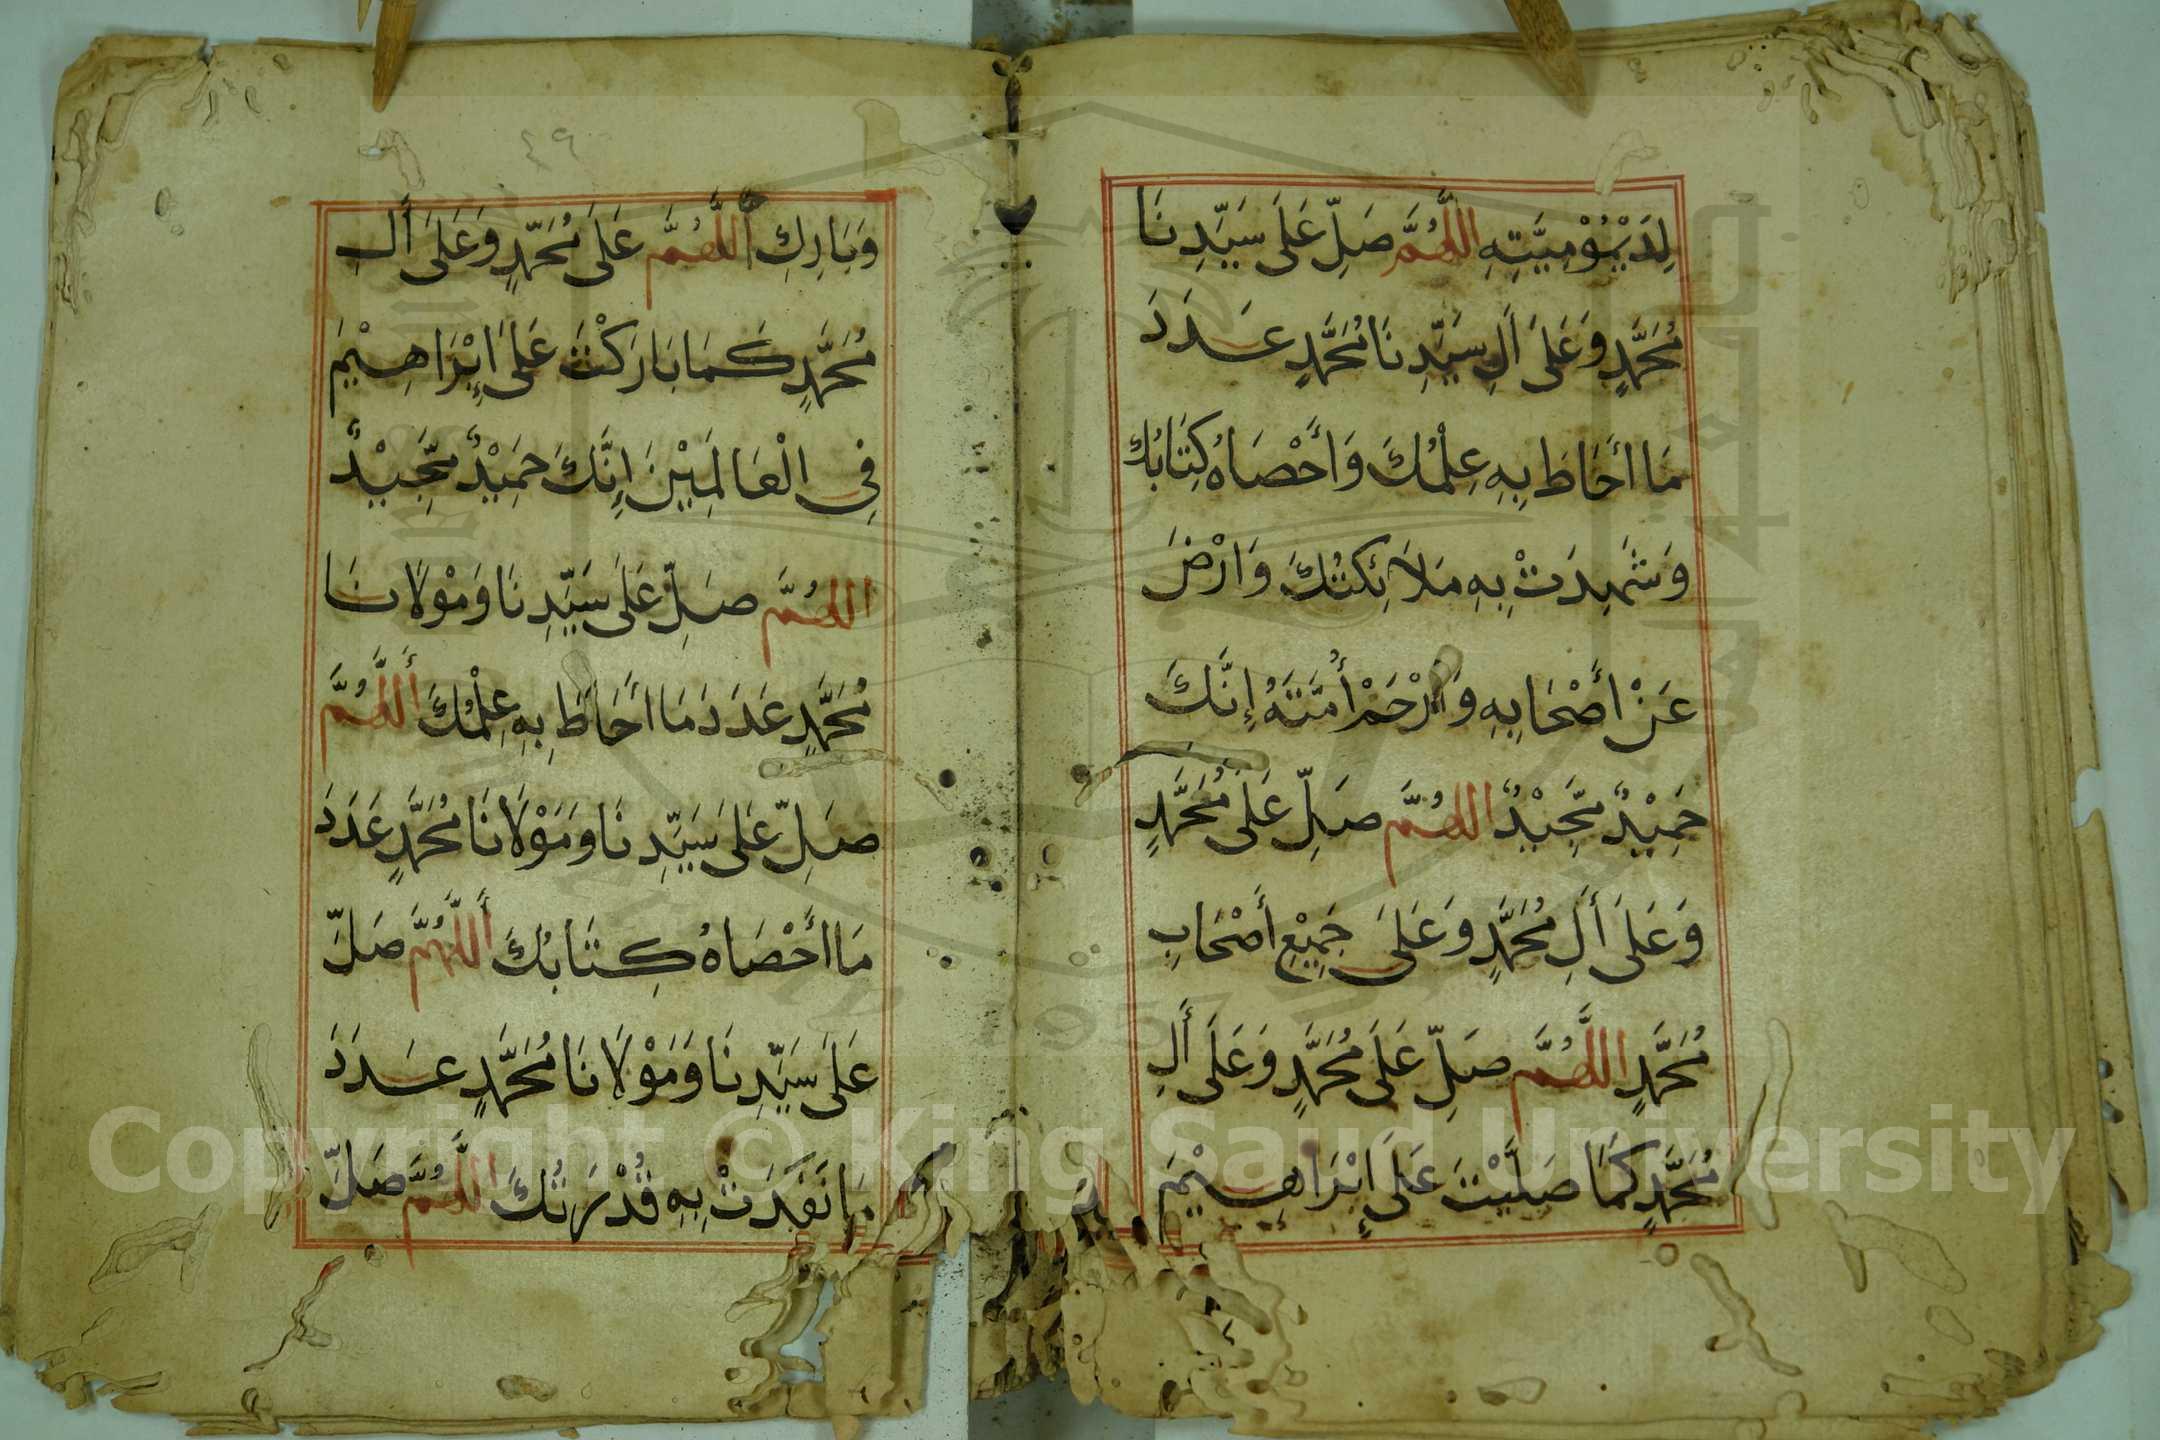 لِدَيْمُوْمِيَّتِهِ اللهُمَّ صَلِّ عَلَى سَيِّدِنَا
مُحَمَّدٍ وَعَلَى اَلِ سَيِّدِنَا مُحَمَّدٍ عَدَدَ
مَا اَحَاطَ بِهِ عِلْمُكَ وَاَحْصَاهُ كِتَابُكَ
وَشَهِدَتْ بِهِ مَلَائِكَتُكَ وَارْضَ
عَنْ اَصْحَابِهِ وَارْحَمْ أُمَّتَهُ إِنَّكَ
حَمِيْدٌ مَّجِيْدٌ اللهُمَّ صَلِّ عَلَى مُحَمَّدٍ
وَعَلَى أَلِ مُحَمَّدٍ وَعَلَى جَمِيْعِ أَصْحَابِ
مُحَمَّدٍ اللَّهُمَّ صَلِّ عَلَى مُحَمَّدٍ وَعَلَى أَلِ
مُحَمَّدٍ كَمَا صَلَّيْتَ عَلَى إِبْرَاهِيْمَ
٤٩
وَبَارِكِ اللَّهُمَّ عَلَى مُحَمَّدٍ وَعَلَى أَلِ
مُحَمَّدٍ كَمَا بَارَكْتَ عَلَى إِبْرَاهِيْمَ
فِي الْعَالَمِيْنَ إِنَّكَ حَمِيْدٌ مَّجِيْدٌ
اللهُمَّ صَلِّ عَلَى سَيِّدِنَا وَمَوْلَانَا
مُحَمَّدٍ عَدَدَ مَا اَحَاطَ بِهِ عِلْمُكَ أَللَّهُمَّ
صَلِّ عَلَى سَيِّدِنَا وَمَوْلَانَا مُحَمَّدٍ عَدَدَ
مَا اَحْصَاهُ كِتَابُكَ أَللَّهُمَّ صَلِّ
عَلَى سَيِّدِنَا وَمَوْلَانَا مُحَمَّدٍ عَدَدَ
مَا نَفَذَتْ بِهِ قُدْرَتُكَ اللَّهُمَّ صَلِّ
Copyright © King Saud University